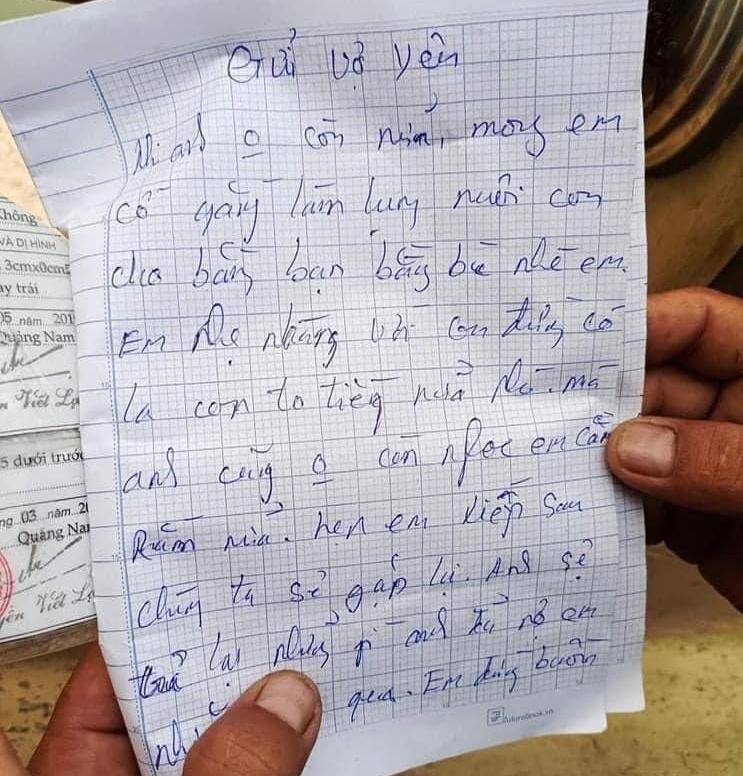 Gửi vợ yên
Khi anh o còn nữa, mong em
cố gắng làm lụng nuôi con
cho bằng bạn bằng bè nhé em.
Em nhẹ nhàng với con đừng có
la con to tiếng nữa nhé. mà
anh cũng o còn nghe em cằn
Rằm nữa. hẹn em kiếp sau
chúng ta sẽ gặp lại. Anh sẽ
trả lại những gì anh nợ em
qua. Em đừng buồn
futurebook.vn
không
VÀ DỊ HÌNH
3cmx0cm5
ay trái
05 năm 201
Quảng Nam
Viết
5 dưới trước
ng 03 năm 2
Quảng Na
Viết